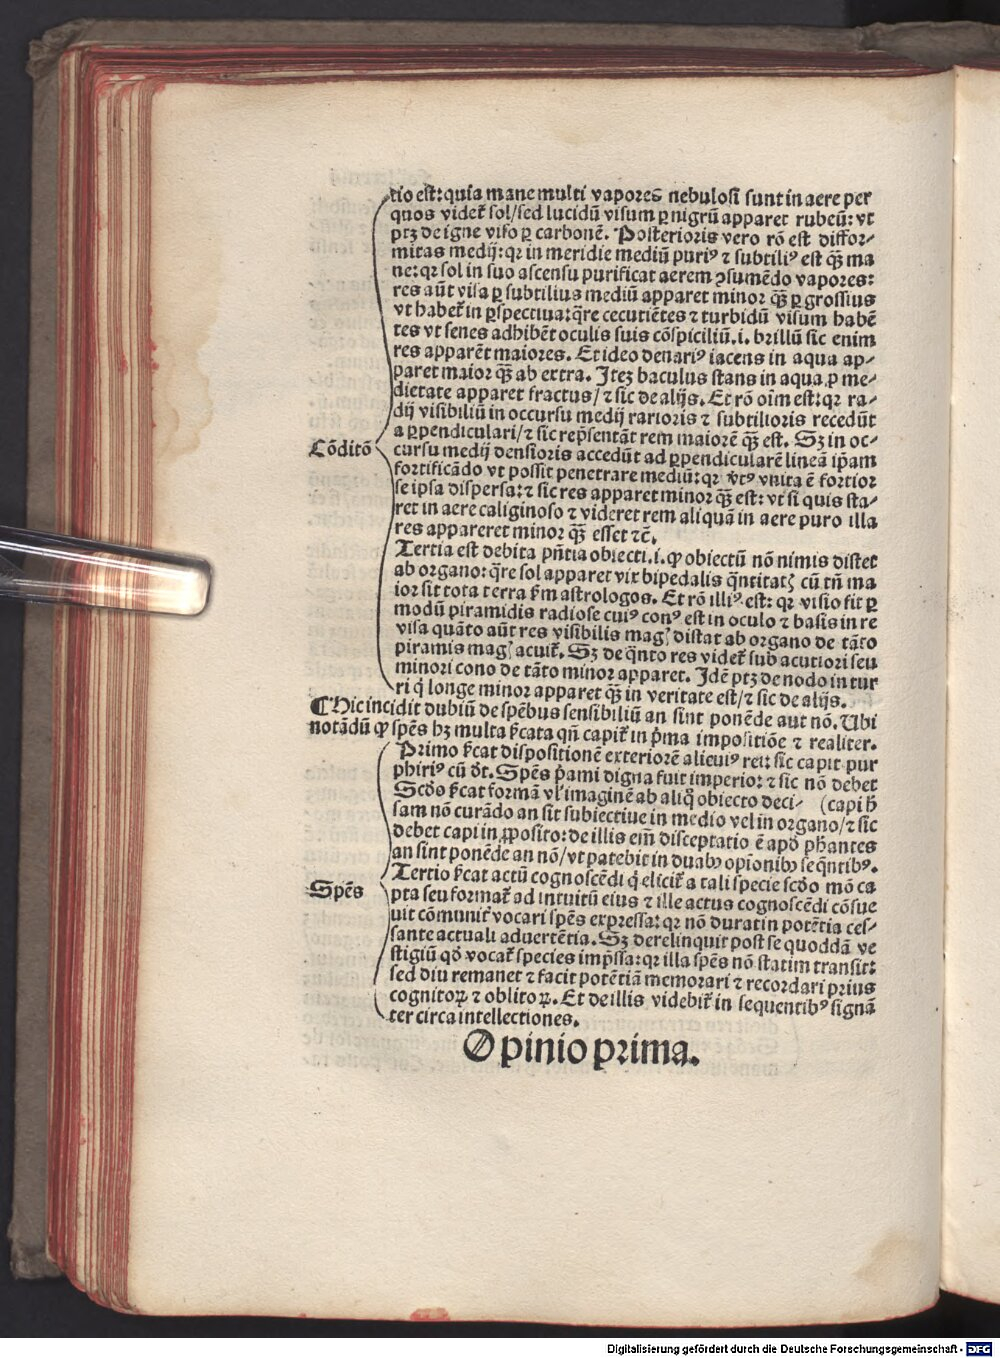 tio est: quia mane multi vapores nebulosi sunt in aere per
quos videt̄ sol/sed lucidū visum ꝑ nigrū apparet rubeū: vt
ptꝫ de igne viso ꝑ carbonē. Posterioris vero rō est diffor-
mitas medij: qꝛ in meridie mediū puriꝰ ⁊ subtiliꝰ est qꝫ̄ ma
ne: qꝛ sol in suo ascensu purificat aerem ↄsumēdo vapores:
res aūt visa ꝑ subtilius mediū apparet minor qꝫ̄ ꝑ grossius
vt habet̄ in ꝑspectiua: q̄re cecutiētes ⁊ turbidū visum habē
tes vt senes adhibēt oculis suis cōspiciliū .i. brillū sic enim
res apparēt maiores. Et ideo denariꝰ iacens in aqua ap-
paret maior qꝫ̄ ab extra. Iteꝫ baculus stans in aqua ꝓ me-
dietate apparet fractus/⁊ sic de alijs. Et rō oīm est: qꝛ ra-
dij visibiliū in occursu medij rarioris ⁊ subtilioris recedūt
a ꝑpendiculari/⁊ sic rep̄sentāt rem maiorē qꝫ̄ est. Sꝫ in oc-
Cōditō
cursu medij densioris accedūt ad ꝑpendicularē lineā ip̄am
fortificādo vt possit penetrare mediū: qꝛ v̄tꝰ vnita ē fortior
se ipsa dispersa: ⁊ sic res apparet minor qꝫ̄ est: vt si quis sta-
ret in aere caliginoso ⁊ videret rem aliquā in aere puro illa
res appareret minor qꝫ̄ esset ⁊c̄.
Tertia est debita pn̄tia obiecti .i. ꝙ obiectū nō nimis distet
ab organo: q̄re sol apparet vix bipedalis q̄ntitatꝭ cū tn̄ ma
ior sit tota terra ẜm astrologos. Et rō illiꝰ est: qꝛ visio fit ꝑ
modū piramidis radiose cuiꝰ conꝰ est in oculo ⁊ basis in re
visa quāto aūt res visibilis magꝭ distat ab organo de tāto
piramis magꝭ acuit̄. Sꝫ de q̄nto res videt̄ sub acutiori seu
minori cono de tāto minor apparet. Idē ptꝫ de nodo in tur
ri q̇ longe minor apparet qꝫ̄ in veritate est/⁊ sic de alijs.
¶ Hic incidit dubiū de spēbus sensibiliū an sint ponēde aut nō. Ubi
notādū ꝙ spēs hꝫ multa ẜcata qn̄ capit̄ in p̄ma impositiōe ⁊ realiter.
Primo ẜcat dispositionē exteriorē alicuiꝰ rei: sic capit pur
phiriꝰ cū d̄t. Spēs p̄ami digna fuit imperio: ⁊ sic nō debet
Scd̄s ẜcat formā vl̓ imaginē ab aliq̊ obiecto deci- (capi h̄
sam nō curādo an sit subiectiue in medio vel in organo/⁊ sic
debet capi in ꝓposito: de illis em̄ disceptatio ē apd̄ ph̄antes
an sint ponēde an nō/vt patebit in duabꝫ opionibꝫ seq̄ntibꝰ.
Spēs
Tertio ẜcat actū cognoscēdi q̇ elicit̄ a tali specie scd̄o mō ca
pta seu format̄ ad intuitū eius ⁊ ille actus cognoscēdi cōsue
uit cōmunit̄ vocari spēs expressa: qꝛ nō durat in potētia ces-
sante actuali aduertētia. Sꝫ derelinquit post se quoddā ve
stigiū qd̄ vocat̄ species imp̄ssa: qꝛ illa spēs nō statim transit:
sed diu remanet ⁊ facit potētiā memorari ⁊ recordari prius
cognitoꝝ ⁊ oblitoꝝ. Et de illis videbit̄ in sequentibꝰ signā
ter circa intellectiones.
Opinio prima.
Digitalisierung gefördert durch die Deutsche Forschungsgemeinschaft - DFG